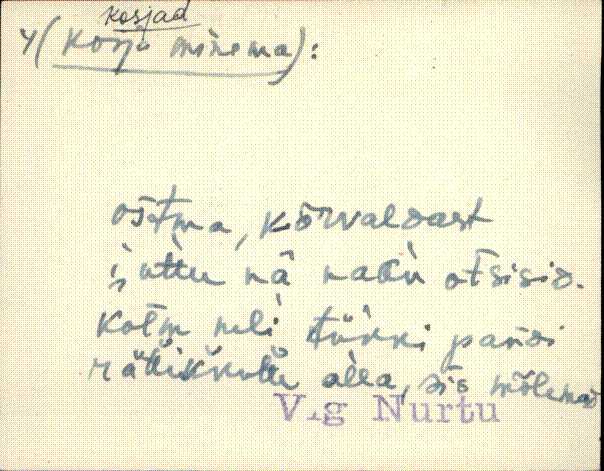 kosjad
4 (kosja minema):
ostma, kõrvaldast
juttu nā nakú otsisid.
kolm neli tükki pańdi
rät́ikkute alla, sis mõlemad
V-g Nurtu